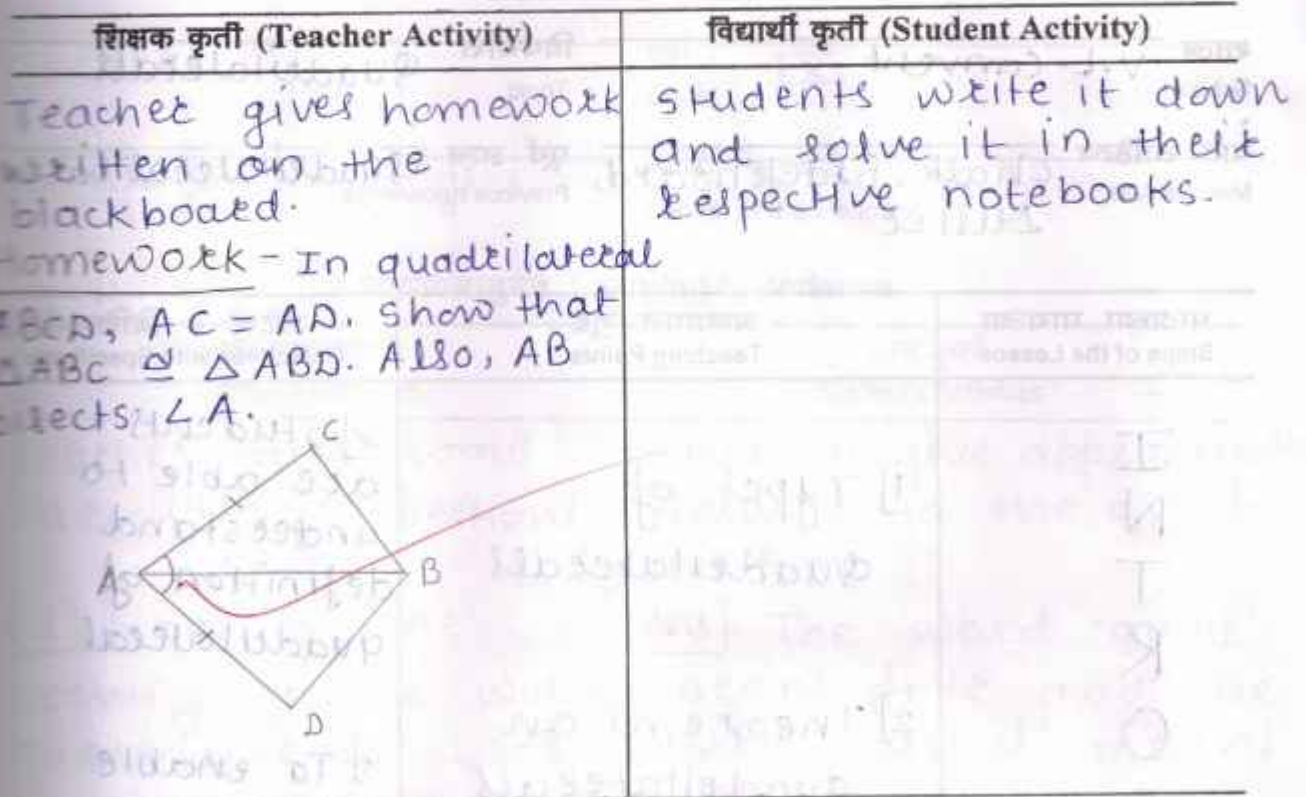 शिक्षक कृती (Teacher Activity)
विद्यार्थी कृती (Student Activity)
Teacher gives homework
written on the
blackboard.
Homework - In quadrilateral
ABCD, AC = AD. Show that
△ABC ≅ △ABD. Also, AB
bisects ∠A.
C
A
B
D
students write it down
and solve it in their
respective notebooks.